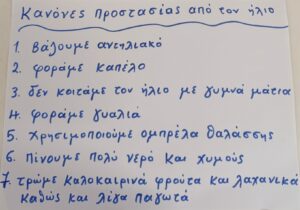 Κανόνες προστασίας από τον ήλιο
1. βάζουμε αντηλιακό
2. φοράμε καπέλο
3. δεν κοιτάμε τον ήλιο με γυμνά μάτια
4. φοράμε γυαλιά
5. Χρησιμοποιούμε ομπρέλα θαλάσσης
6. Πίνουμε πολύ νερό και χυμούς
7. τρώμε καλοκαιρινά φρούτα και λαχανικά
καθώς και λίγα παγωτά